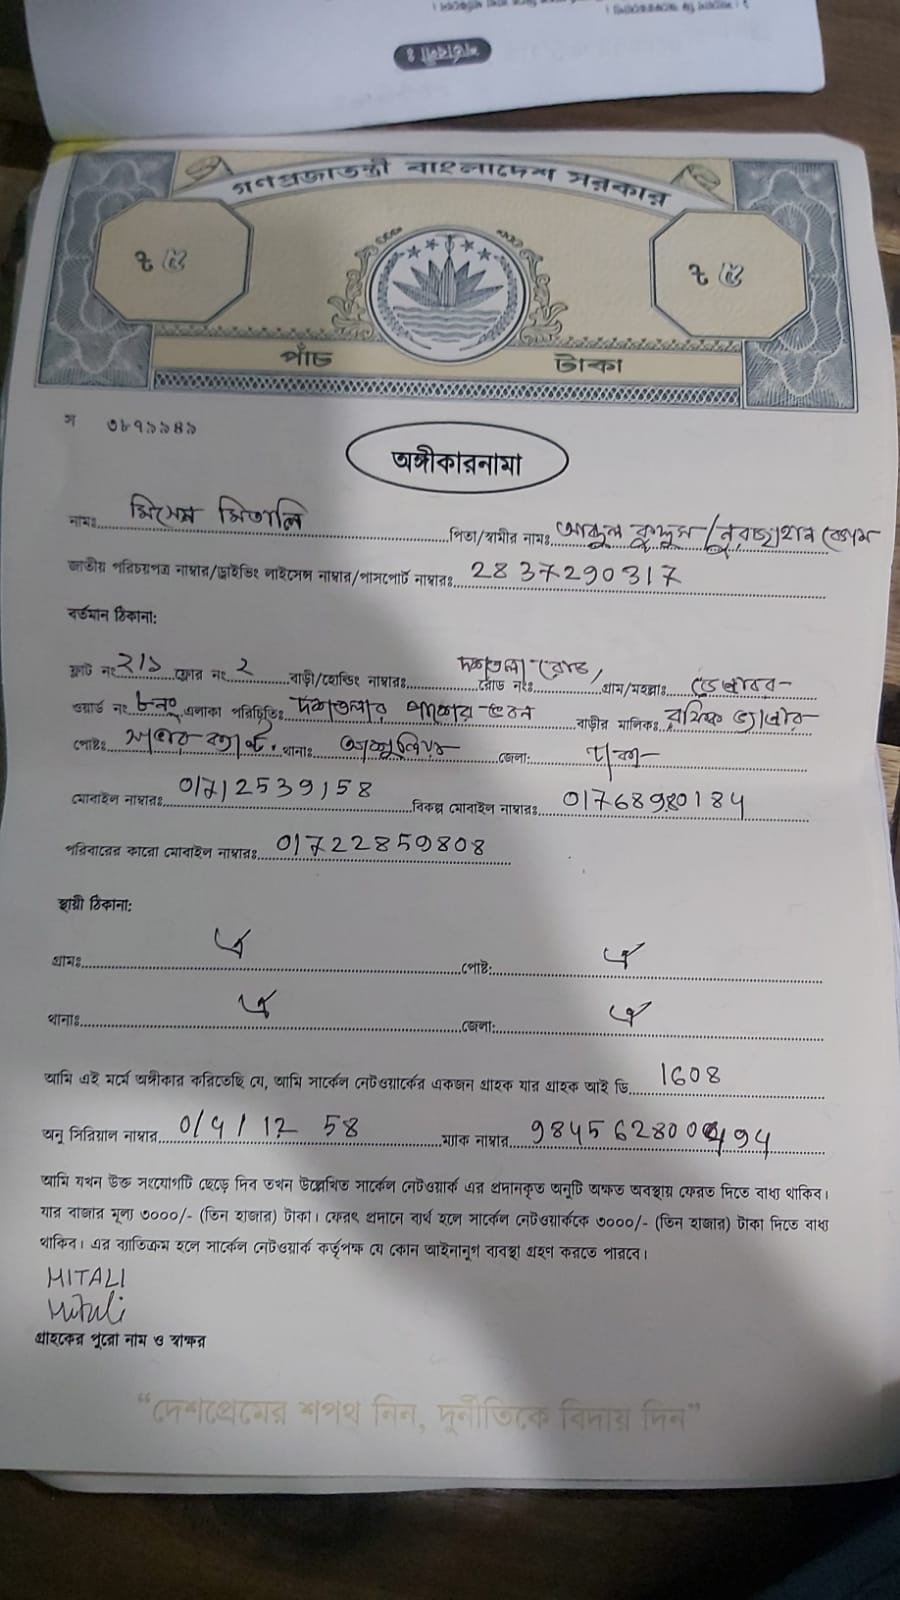 গণপ্রজাতন্ত্রী বাংলাদেশ সরকার
৳ ৫ ৳ ৫
পাঁচ টাকা
স ৩৮৭৯৯৪৯
অঙ্গীকারনামা
নামঃ মিসেস মিতালি পিতা/স্বামীর নামঃ আব্দুল কুদ্দুস/নুরজাহান বেগম
জাতীয় পরিচয়পত্র নাম্বার/ড্রাইভিং লাইসেন্স নাম্বার/পাসপোর্ট নাম্বারঃ 2837290317
বর্তমান ঠিকানা:
ফ্লাট নং ২/১ ফ্লোর নং ২ বাড়ী/হোল্ডিং নাম্বারঃ রোড নংঃ রোড, গ্রাম/মহল্লাঃ
ওয়ার্ড নং ৮নং এলাকা পরিচিতিঃ বাড়ীর মালিকঃ
পোষ্টঃ থানাঃ জেলা: ঢাকা
মোবাইল নাম্বারঃ 01712539158 বিকল্প মোবাইল নাম্বারঃ 01768980184
পরিবারের কারো মোবাইল নাম্বারঃ 01722859808
স্থায়ী ঠিকানা:
গ্রামঃ ঐ পোষ্ট: ঐ
থানাঃ ঐ জেলা: ঐ
আমি এই মর্মে অঙ্গীকার করিতেছি যে, আমি সার্কেল নেটওয়ার্কের একজন গ্রাহক যার গ্রাহক আই ডি 1608
অনু সিরিয়াল নাম্বার 0/4/12 58 ম্যাক নাম্বার
আমি যখন উক্ত সংযোগটি ছেড়ে দিব তখন উল্লেখিত সার্কেল নেটওয়ার্ক এর প্রদানকৃত অনুটি অক্ষত অবস্থায় ফেরত দিতে বাধ্য থাকিব।
যার বাজার মূল্য ৩০০০/- (তিন হাজার) টাকা। ফেরৎ প্রদানে ব্যর্থ হলে সার্কেল নেটওয়ার্ককে ৩০০০/- (তিন হাজার) টাকা দিতে বাধ্য
থাকিব। এর ব্যতিক্রম হলে সার্কেল নেটওয়ার্ক কর্তৃপক্ষ যে কোন আইনানুগ ব্যবস্থা গ্রহণ করতে পারবে।
MITALI
Mitali
গ্রাহকের পুরো নাম ও স্বাক্ষর
“দেশপ্রেমের শপথ নিন, দুর্নীতিকে বিদায় দিন”